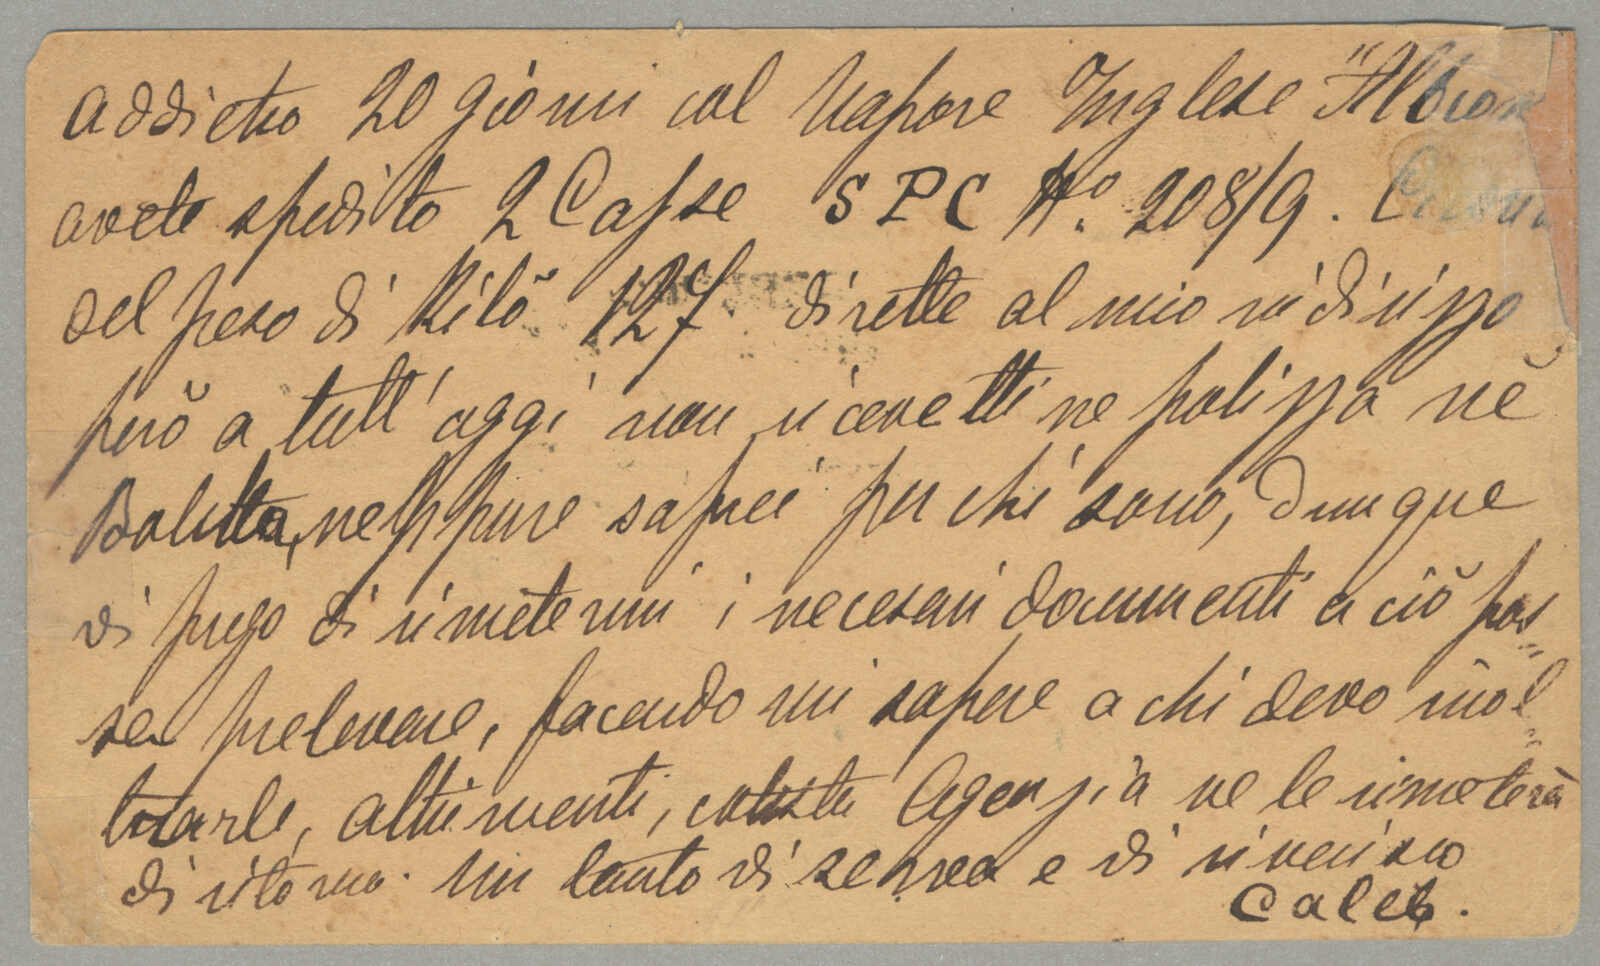 addietro 20 giorni col Vapore Inglese "Albion
avete spedito 2 Casse S P C No. 208/9.
del peso di Kilõ 127 dirette al mio indirizzo
però a tutt'oggi non ricevetti ne polizza nè
Boletta, neppure saprei per chi sono, dunque
vi prego di rimetermi i necesari documenti a ciò pos=
sa prelevare, facendomi sapere a chi devo inol=
trarle, altrimenti, cotesta Agenzia ve le rimeterà
di ritorno. Mi tanto vi serva e vi riverisco
Caleb.